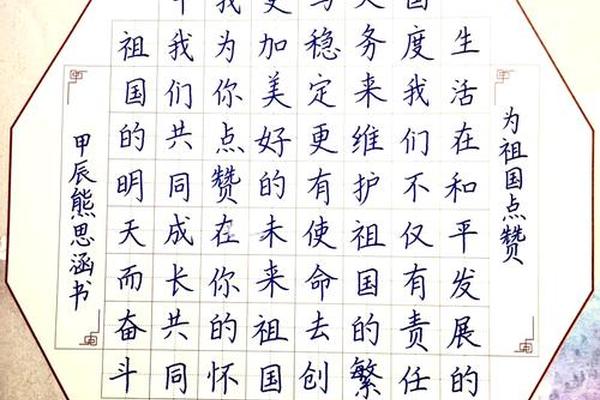 为祖国点赞
生活在和平发展的
国度我们不仅有责任
务来维护祖国的繁
与稳定更有使命去创
更加美好的未来祖国
我为你点赞在你的怀
我们共同成长共同
祖国的明天而奋斗
甲辰熊思涵书